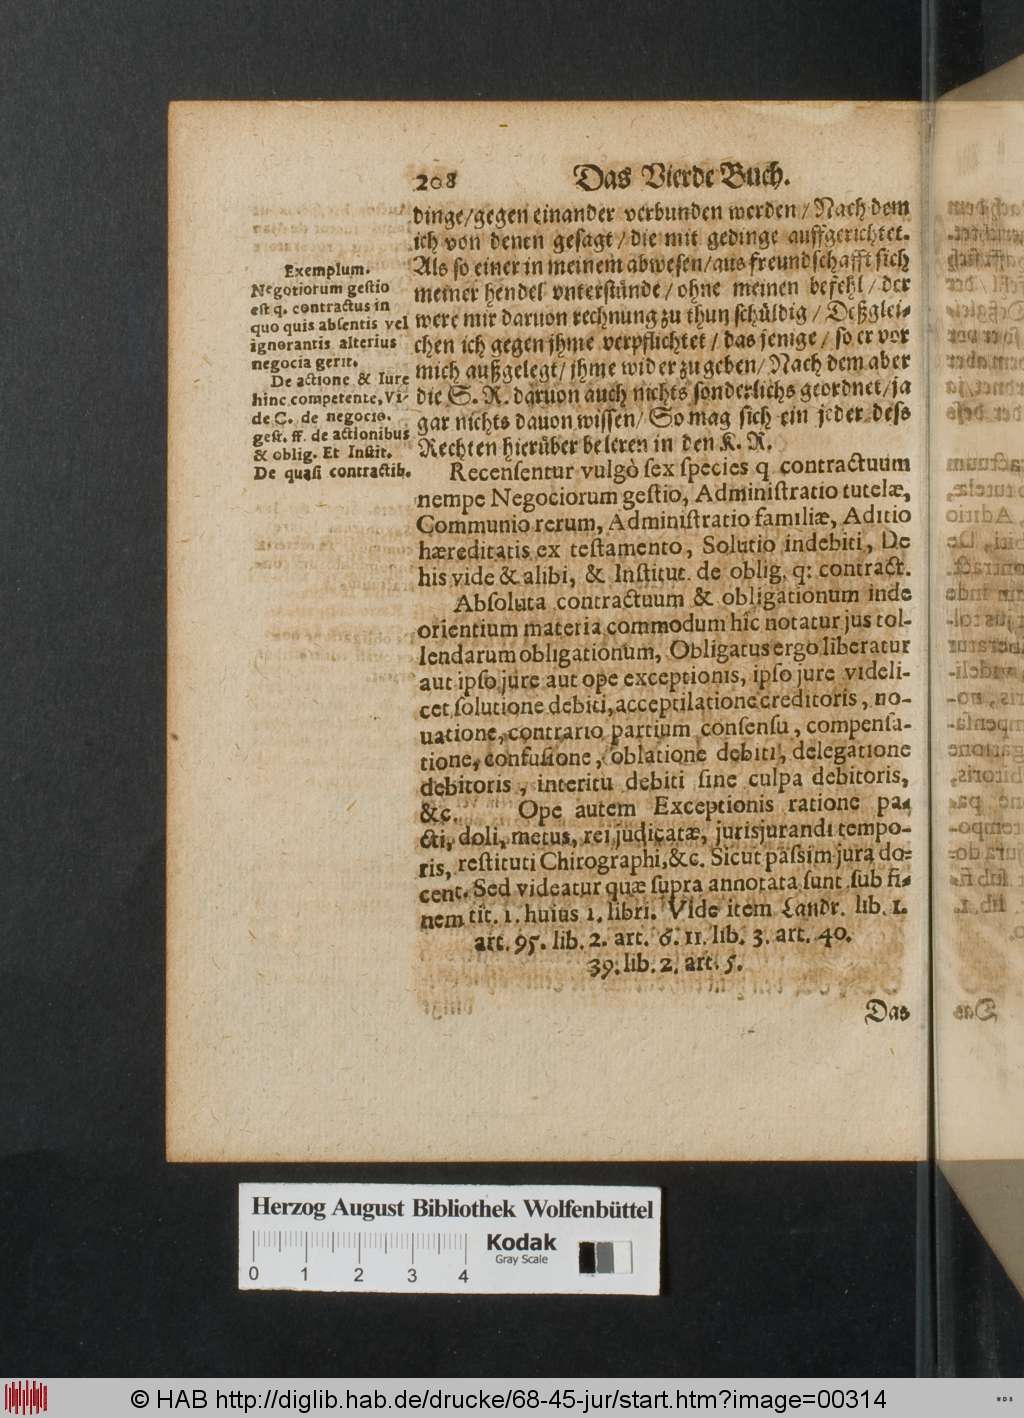 208 Das Vierde Buch.
dinge/gegen einander verbunden werden / Nach dem
ich von denen gesagt / die mit gedinge auffgerichtet.
Als so einer in meinem abwesen/aus freundschafft sich
meiner hendel vnterstünde / ohne meinen befehl / der
were mir daruon rechnung zu thun schüldig / Deßglei-
chen ich gegen jhme verpflichtet / das jenige / so er vor
mich außgelegt / jhme wider zu geben / Nach dem aber
die S. R. daruon auch nichts sonderlichs geordnet / ja
gar nichts dauon wissen / So mag sich ein jeder dess
Rechten hierüber beleren in den K. R.
Exemplum.
Negotiorum gestio
est q. contractus in
quo quis absentis vel
ignorantis alterius
negocia gerit.
De actione & Iure
hinc competente, Vi-
de C. de negocio.
gest. ff. de actionibus
& oblig. Et Instit.
De quasi contractib.
Recensentur vulgò sex species q contractuum
nempe Negociorum gestio, Administratio tutelæ,
Communio rerum, Administratio familiæ, Aditio
hæreditatis ex testamento, Solutio indebiti, De
his vide & alibi, & Institut. de oblig. q: contract.
Absoluta contractuum & obligationum inde
orientium materia commodum hîc notatur jus tol-
lendarum obligationum, Obligatus ergo liberatur
aut ipso jure aut ope exceptionis, ipso jure videli-
cet solutione debiti, acceptilatione creditoris, no-
uatione, contrario partium consensu, compensa-
tione, confusione, oblatione debiti, delegatione
debitoris, interitu debiti sine culpa debitoris,
&c. Ope autem Exceptionis ratione pa-
cti, doli, metus, rei judicatæ, jurisjurandi tempo-
ris, restituti Chirographi, &c. Sicut passim jura do-
cent. Sed videatur quæ supra annotata sunt sub fi-
nem tit. 1. huius 1. libri. Vide item Landr. lib. 1.
art. 95. lib. 2. art. 6. 11. lib. 3. art. 40.
39. lib. 2. art. 5.
Das
Herzog August Bibliothek Wolfenbüttel
Kodak
Gray Scale
0 1 2 3 4
© HAB http://diglib.hab.de/drucke/68-45-jur/start.htm?image=00314